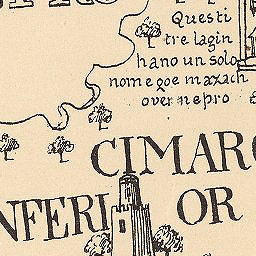 Questi
tre lagin
hano un solo
nome goe maxach
over nepro
CIMARO
NFERI OR